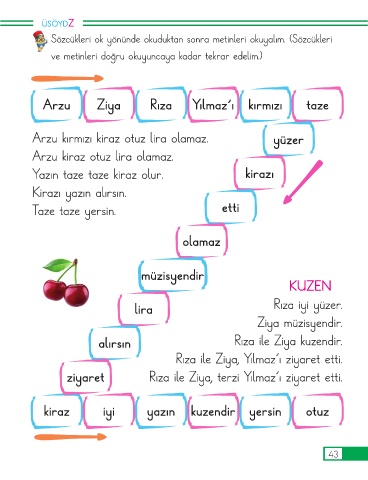 ÜSÖYDZ
Sözcükleri ok yönünde okuduktan sonra metinleri okuyalım. (Sözcükleri
ve metinleri doğru okuyuncaya kadar tekrar edelim.)
Arzu Ziya Rıza Yılmaz'ı kırmızı taze
yüzer
kirazı
etti
olamaz
müzisyendir
lira
alırsın
ziyaret
kiraz iyi yazın kuzendir yersin otuz
Arzu kırmızı kiraz otuz lira olamaz.
Arzu kiraz otuz lira olamaz.
Yazın taze taze kiraz olur.
Kirazı yazın alırsın.
Taze taze yersin.
KUZEN
Rıza iyi yüzer.
Ziya müzisyendir.
Rıza ile Ziya kuzendir.
Rıza ile Ziya, Yılmaz'ı ziyaret etti.
Rıza ile Ziya, terzi Yılmaz'ı ziyaret etti.
43